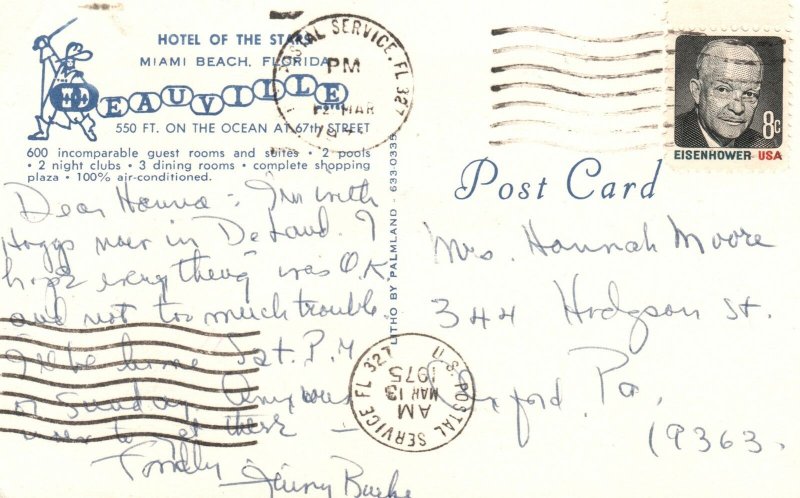 HOTEL OF THE STARS
MIAMI BEACH, FLORIDA
THE
DEAUVILLE
550 FT. ON THE OCEAN AT 67th STREET
600 incomparable guest rooms and suites • 2 pools
• 2 night clubs • 3 dining rooms • complete shopping
plaza • 100% air-conditioned.
POSTAL SERVICE, FL 327
PM
12 MAR
EISENHOWER USA
8c
Post Card
LITHO BY PALMLAND - 633-0339
Dear Hanna - I'm with
Hoggs now in DeLand. I
hope everything was O.K.
and not too much trouble.
I'll be home Sat. P.M.
or Sunday
to get these -
Fondly Jenny Burke
Mrs. Hannah Moore
344 Hodgson St.
Oxford, Pa.
19363.
U.S. POSTAL SERVICE FL 327
AM
MAR 13
1975